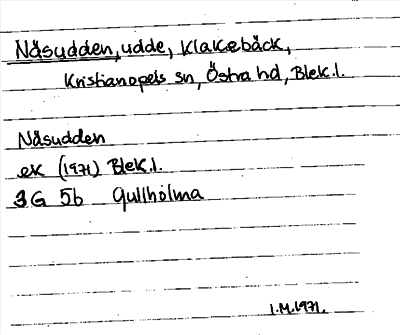 Näsudden, udde, Klakebäck,
Kristianopels sn, Östra hd, Blek. l.
Näsudden
ek (1971) Blek. l.
3G 5b Gullholma
I.M. 1971.